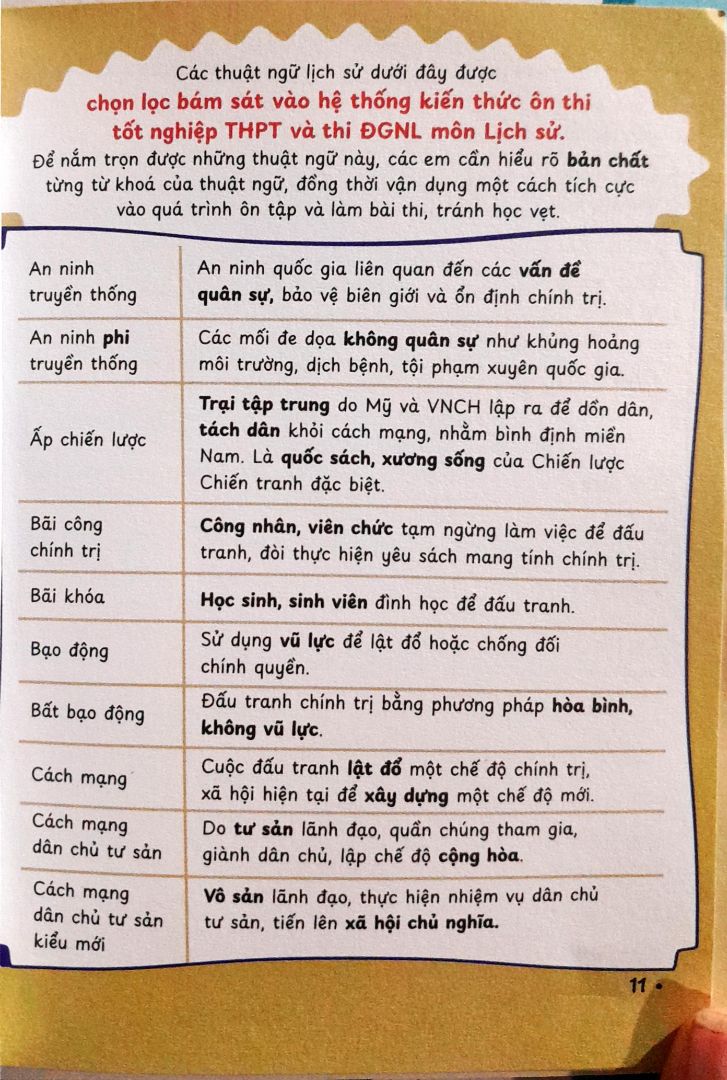 Các thuật ngữ lịch sử dưới đây được
chọn lọc bám sát vào hệ thống kiến thức ôn thi
tốt nghiệp THPT và thi ĐGNL môn Lịch sử.
Để nắm trọn được những thuật ngữ này, các em cần hiểu rõ bản chất
từng từ khoá của thuật ngữ, đồng thời vận dụng một cách tích cực
vào quá trình ôn tập và làm bài thi, tránh học vẹt.
An ninh
truyền thống
An ninh quốc gia liên quan đến các vấn đề
quân sự, bảo vệ biên giới và ổn định chính trị.
An ninh phi
truyền thống
Các mối đe dọa không quân sự như khủng hoảng
môi trường, dịch bệnh, tội phạm xuyên quốc gia.
Ấp chiến lược
Trại tập trung do Mỹ và VNCH lập ra để dồn dân,
tách dân khỏi cách mạng, nhằm bình định miền
Nam. Là quốc sách, xương sống của Chiến lược
Chiến tranh đặc biệt.
Bãi công
chính trị
Công nhân, viên chức tạm ngừng làm việc để đấu
tranh, đòi thực hiện yêu sách mang tính chính trị.
Bãi khóa
Học sinh, sinh viên đình học để đấu tranh.
Bạo động
Sử dụng vũ lực để lật đổ hoặc chống đối
chính quyền.
Bất bạo động
Đấu tranh chính trị bằng phương pháp hòa bình,
không vũ lực.
Cách mạng
Cuộc đấu tranh lật đổ một chế độ chính trị,
xã hội hiện tại để xây dựng một chế độ mới.
Cách mạng
dân chủ tư sản
Do tư sản lãnh đạo, quần chúng tham gia,
giành dân chủ, lập chế độ cộng hòa.
Cách mạng
dân chủ tư sản
kiểu mới
Vô sản lãnh đạo, thực hiện nhiệm vụ dân chủ
tư sản, tiến lên xã hội chủ nghĩa.
11 •